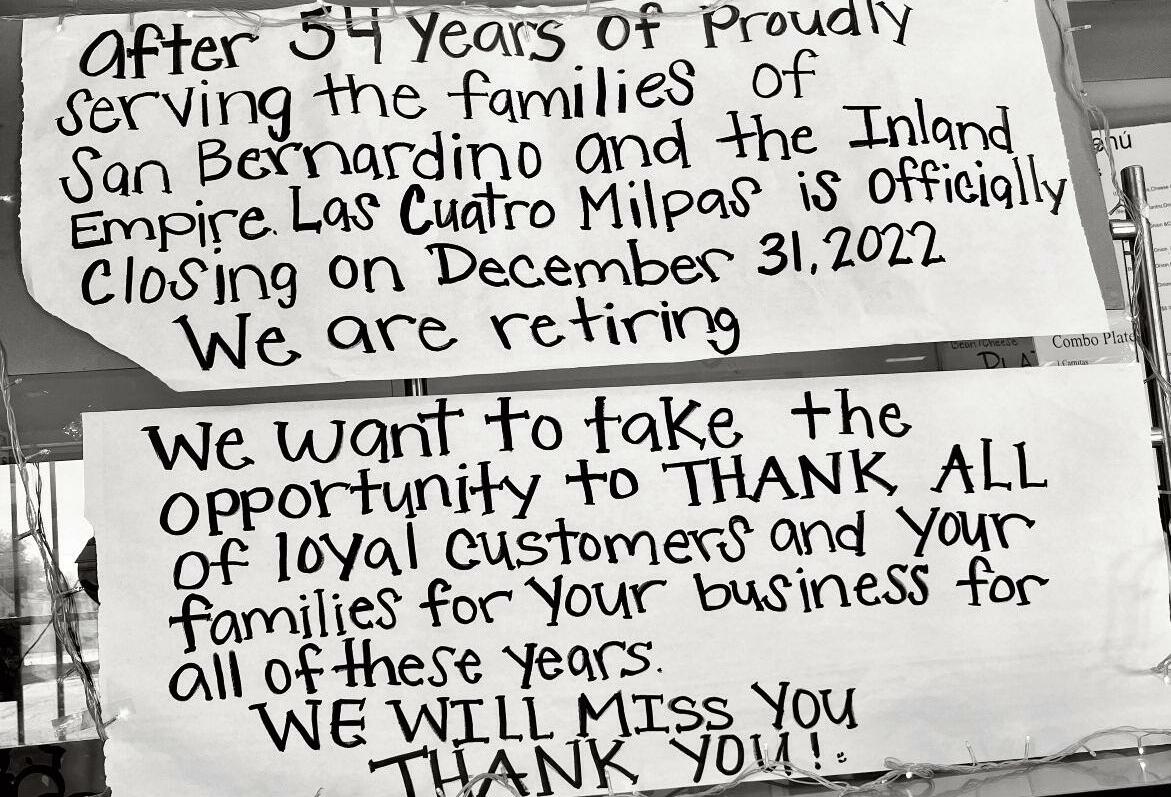 After 54 Years of Proudly
serving the families of
San Bernardino and the Inland
Empire. Las Cuatro Milpas is officially
Closing on December 31, 2022
We are retiring
We want to take the
opportunity to THANK ALL
of loyal customers and your
families for your business for
all of these years.
WE WILL MISS YOU
THANK YOU!
enú
Bean &Cheese
Combo Plate